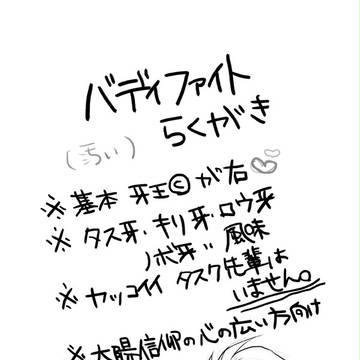 バディファイト
らくがき
(汚い)
※基本 牙王©が右♡
※タス牙・キリ牙・ロウ牙
ノボ牙" 風味
※ヤッコイイ タスク先輩は
いません。
※太陽信仰の心の広い方向け